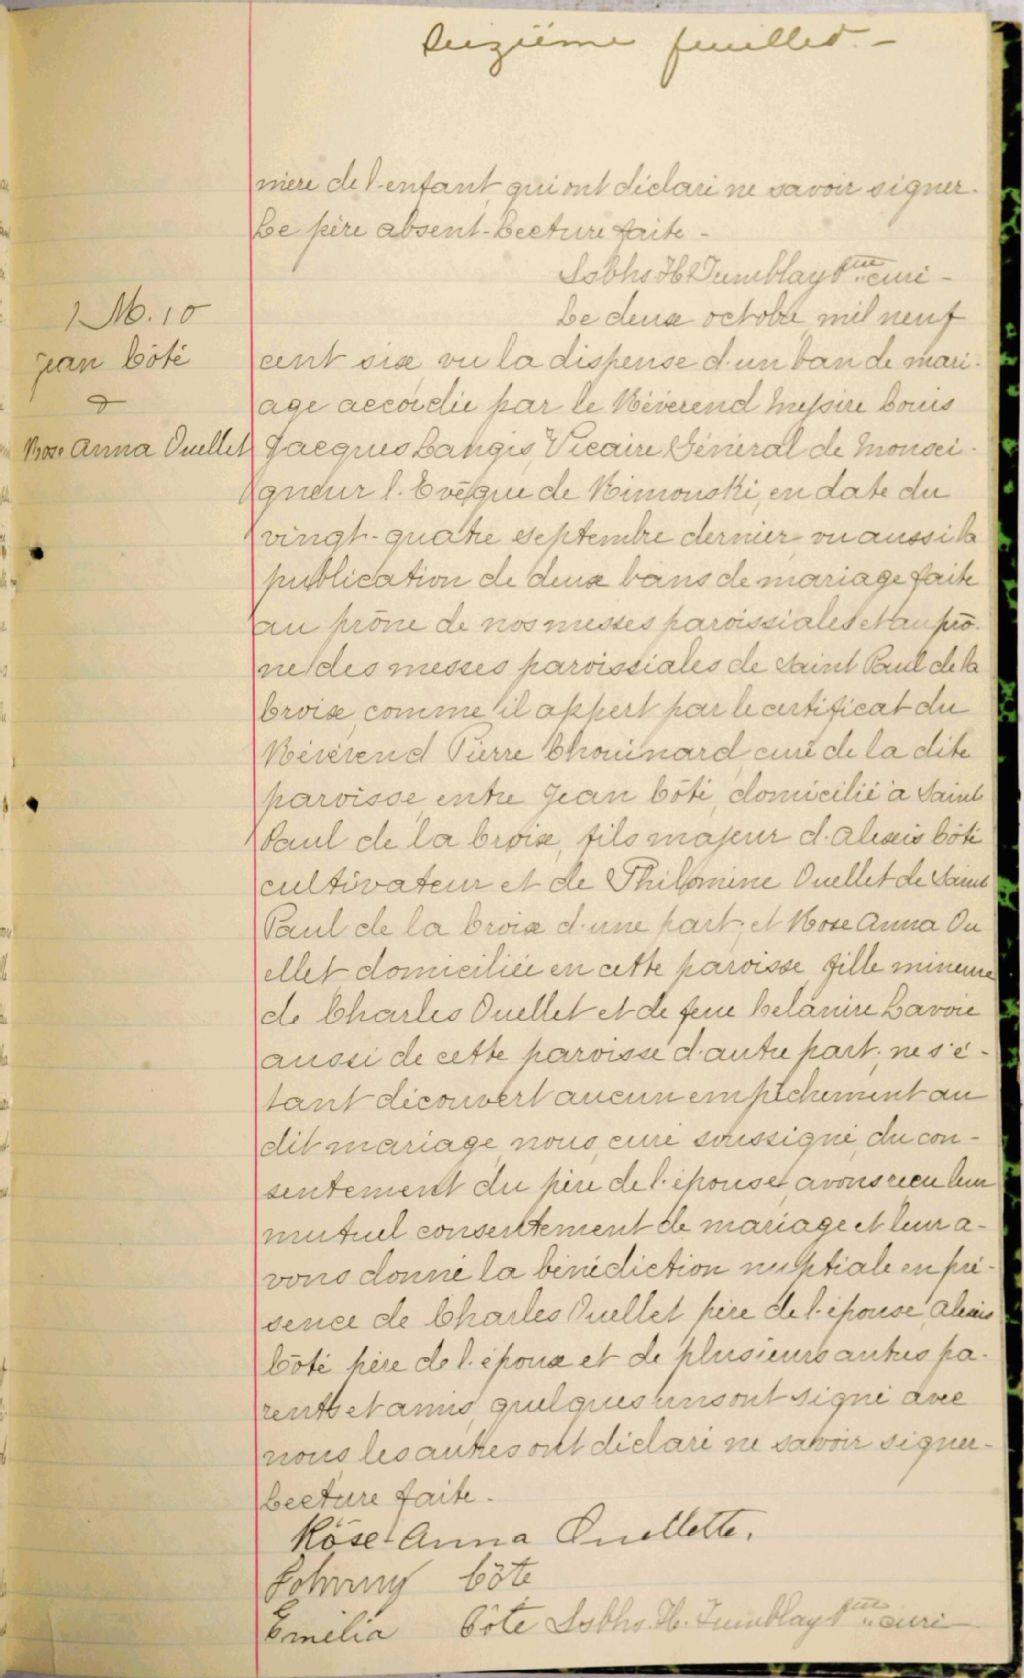 Seizième feuillet. -
mère de l'enfant, qui ont déclaré ne savoir signer.
Le père absent - Lecture faite -
Ls Chs H. Tremblay Ptre curé -
Le deux octobre mil neuf
1 M. 10
Jean Côté
&
Rose Anna Ouellet
cent six, vu la dispense d'un ban de mari-
age accordée par le Révérend Messire Louis
Jacques Langis, Vicaire Général de Monsei-
gneur l'Evêque de Rimouski, en date du
vingt-quatre septembre dernier, vu aussi la
publication de deux bans de mariage faite
au prône de nos messes paroissiales et au prô-
ne des messes paroissiales de Saint Paul de la
Croix, comme il appert par le certificat du
Révérend Pierre Chouinard, curé de la dite
paroisse, entre Jean Côté, domicilié à Saint
Paul de la Croix, fils majeur d'Alexis Côté
cultivateur et de Philomène Ouellet de Saint
Paul de la Croix d'une part; et Rose Anna Ou
ellet, domiciliée en cette paroisse, fille mineure
de Charles Ouellet et de feue Célanire Lavoie
aussi de cette paroisse d'autre part; ne s'é-
tant découvert aucun empêchement au
dit mariage, nous, curé soussigné, du con-
sentement du père de l'épouse, avons reçu leur
mutuel consentement de mariage et leur a-
vons donné la bénédiction nuptiale en pré-
sence de Charles Ouellet père de l'épouse, Alexis
Côté père de l'époux et de plusieurs autres pa-
rents et amis, quelques uns ont signé avec
nous, les autres ont déclaré ne savoir signer.
Lecture faite.
Rose-Anna Ouellette.
Johnny Côté
Emélia Côté Ls Chs. H. Tremblay Ptre curé